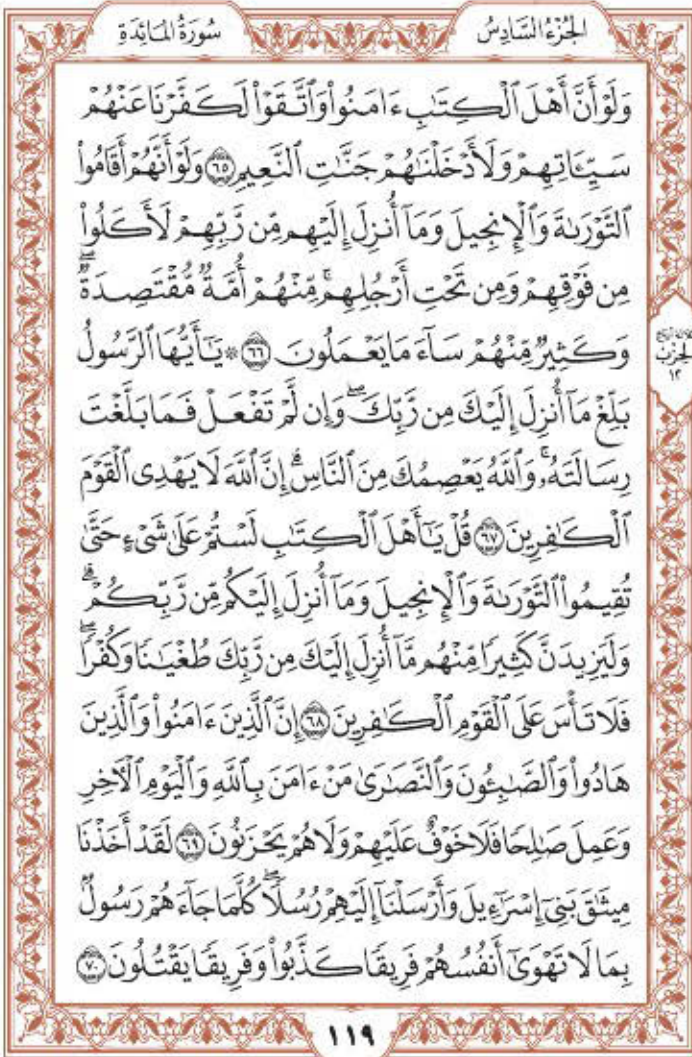 سُورَةُ المَائدَةِ
الجُزْءُ السَّادِسُ
وَلَوۡ أَنَّ أَهۡلَ ٱلۡكِتَٰبِ ءَامَنُواْ وَٱتَّقَوۡاْ لَكَفَّرۡنَا عَنۡهُمۡ
سَيِّـَٔاتِهِمۡ وَلَأَدۡخَلۡنَٰهُمۡ جَنَّٰتِ ٱلنَّعِيمِ ٦٥ وَلَوۡ أَنَّهُمۡ أَقَامُواْ
ٱلتَّوۡرَىٰةَ وَٱلۡإِنجِيلَ وَمَآ أُنزِلَ إِلَيۡهِم مِّن رَّبِّهِمۡ لَأَكَلُواْ
مِن فَوۡقِهِمۡ وَمِن تَحۡتِ أَرۡجُلِهِمۚ مِّنۡهُمۡ أُمَّةٞ مُّقۡتَصِدَةٞۖ
وَكَثِيرٞ مِّنۡهُمۡ سَآءَ مَا يَعۡمَلُونَ ٦٦ ۞ يَٰٓأَيُّهَا ٱلرَّسُولُ
بَلِّغۡ مَآ أُنزِلَ إِلَيۡكَ مِن رَّبِّكَۖ وَإِن لَّمۡ تَفۡعَلۡ فَمَا بَلَّغۡتَ
رِسَالَتَهُۥۚ وَٱللَّهُ يَعۡصِمُكَ مِنَ ٱلنَّاسِۗ إِنَّ ٱللَّهَ لَا يَهۡدِي ٱلۡقَوۡمَ
ٱلۡكَٰفِرِينَ ٦٧ قُلۡ يَٰٓأَهۡلَ ٱلۡكِتَٰبِ لَسۡتُمۡ عَلَىٰ شَيۡءٍ حَتَّىٰ
تُقِيمُواْ ٱلتَّوۡرَىٰةَ وَٱلۡإِنجِيلَ وَمَآ أُنزِلَ إِلَيۡكُم مِّن رَّبِّكُمۡۗ
وَلَيَزِيدَنَّ كَثِيرٗا مِّنۡهُم مَّآ أُنزِلَ إِلَيۡكَ مِن رَّبِّكَ طُغۡيَٰنٗا وَكُفۡرٗاۖ
فَلَا تَأۡسَ عَلَى ٱلۡقَوۡمِ ٱلۡكَٰفِرِينَ ٦٨ إِنَّ ٱلَّذِينَ ءَامَنُواْ وَٱلَّذِينَ
هَادُواْ وَٱلصَّٰبِـُٔونَ وَٱلنَّصَٰرَىٰ مَنۡ ءَامَنَ بِٱللَّهِ وَٱلۡيَوۡمِ ٱلۡأٓخِرِ
وَعَمِلَ صَٰلِحٗا فَلَا خَوۡفٌ عَلَيۡهِمۡ وَلَا هُمۡ يَحۡزَنُونَ ٦٩ لَقَدۡ أَخَذۡنَا
مِيثَٰقَ بَنِيٓ إِسۡرَٰٓءِيلَ وَأَرۡسَلۡنَآ إِلَيۡهِمۡ رُسُلٗاۖ كُلَّمَا جَآءَهُمۡ رَسُولُۢ
بِمَا لَا تَهۡوَىٰٓ أَنفُسُهُمۡ فَرِيقٗا كَذَّبُواْ وَفَرِيقٗا يَقۡتُلُونَ ٧٠
الحِزْب
١٢
١١٩